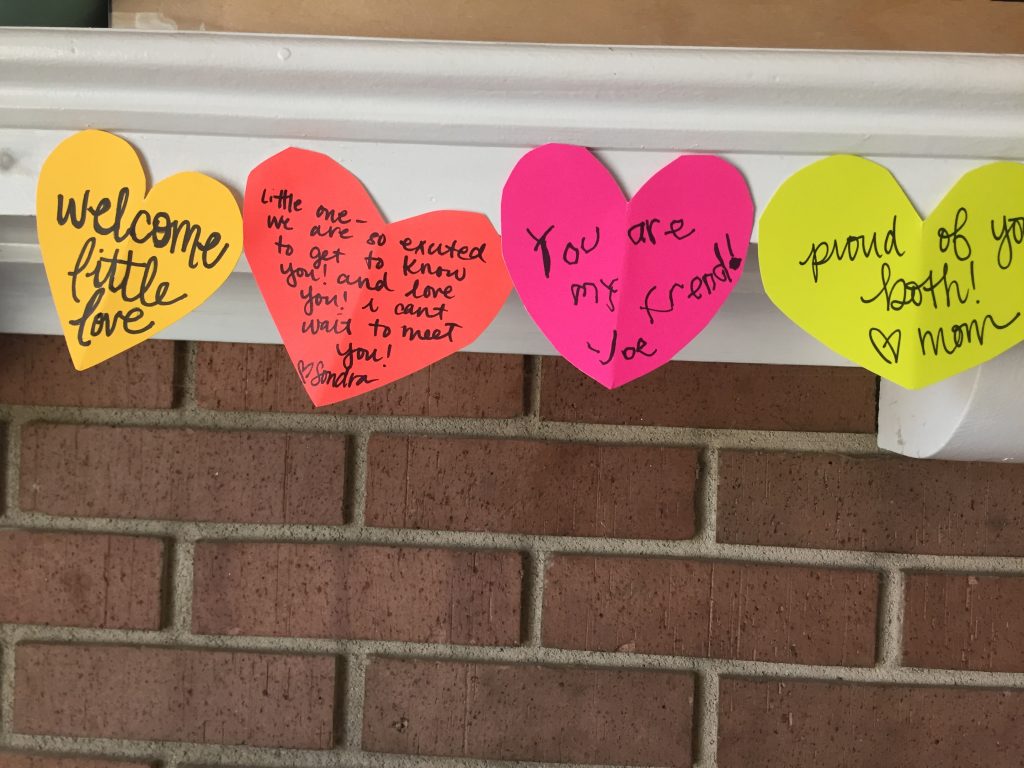 welcome
little
love
Little one-
we are so excited
to get to know
you! and love
you! i can't
wait to meet
you!
♡Sondra
You are
my
friend!
Joe
proud of you
both!
♡ mom